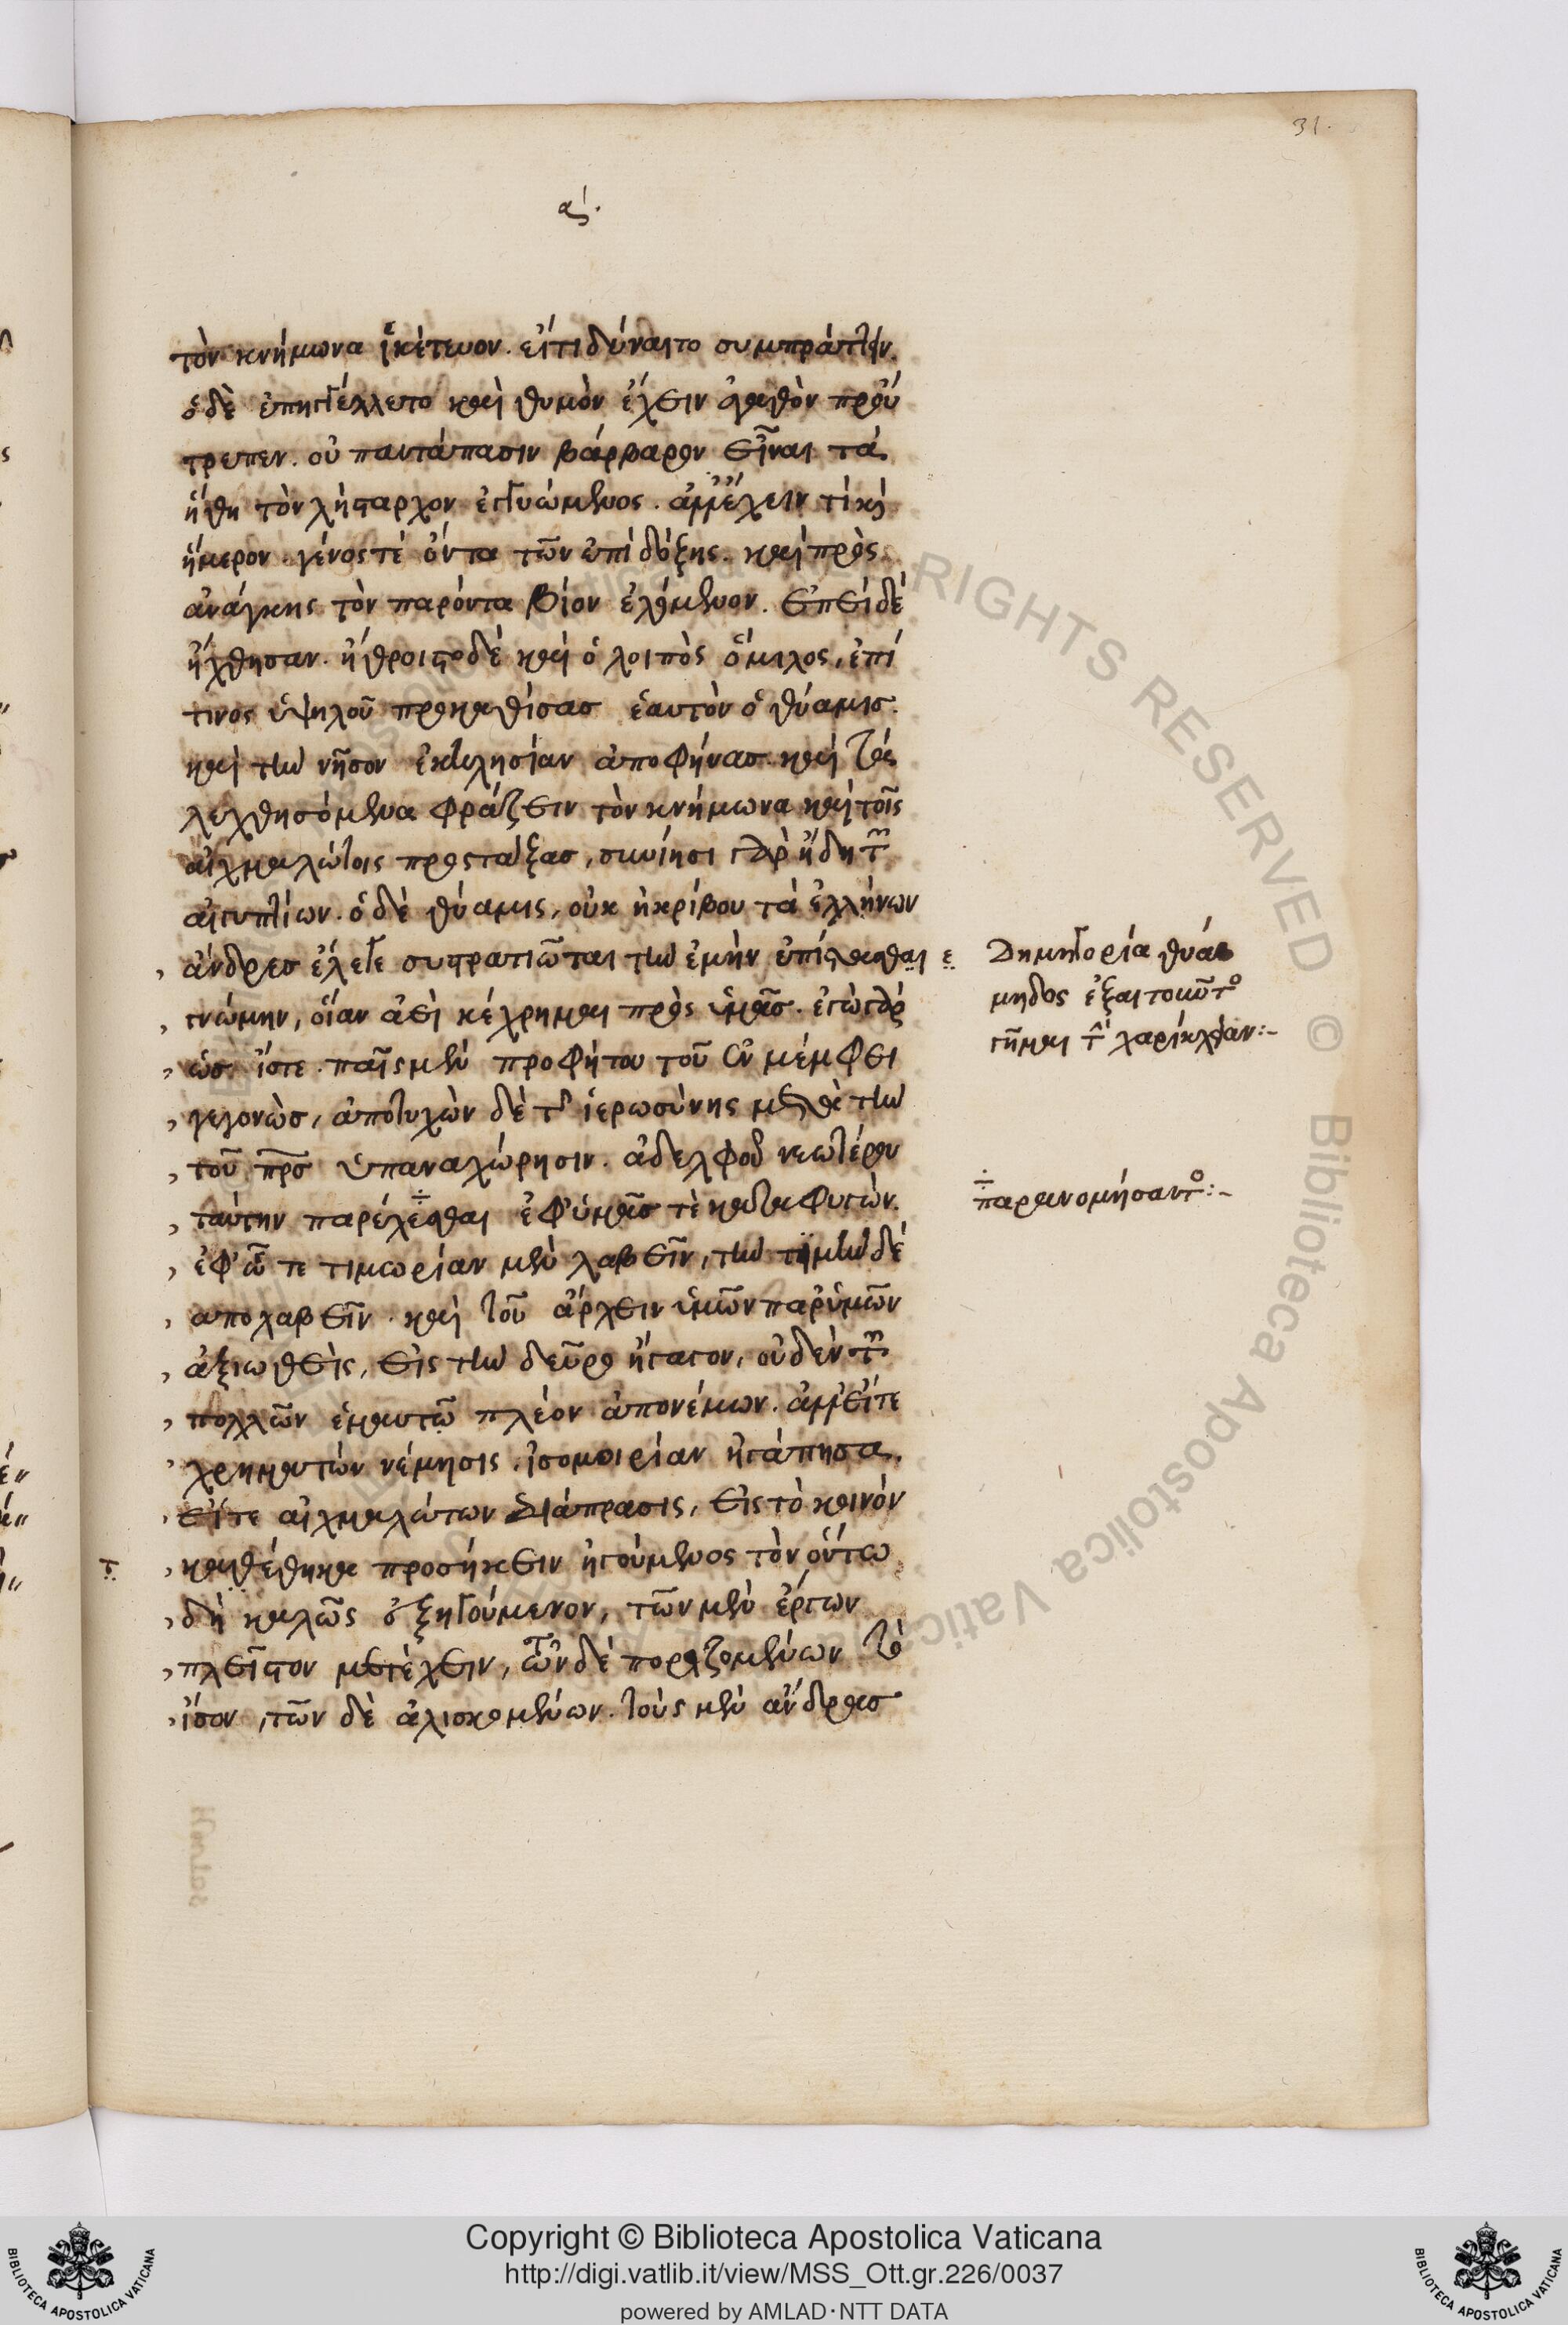 31.
αʹ.
τὸν κνήμωνα ἱκέτευον. εἴτι δύναιτο συμπράττειν.
ὁδὲ ἐπηγγέλλετο καὶ θυμὸν ἔχειν ἀγαθὸν πρού
τρεπεν. οὐ παντάπασιν βάρβαρον εἶναι τὰ
ἤθη τὸν λήσταρχον ἐγγυώμενος. ἀλλἔχειν τὶ καὶ
ἥμερον. γένος τὲ ὄντα τῶν ἐπὶ δόξης. καὶ πρὸς
ἀνάγκης τὸν παρόντα βίον ἑλόμενον. ἐπεὶ δὲ
ἤχθησαν. ἤθροιστο δὲ καὶ ὁ λοιπὸς ὅμιλος, ἐπί
τινος ὑψηλοῦ προκαθίσας ἑαυτὸν ὁ θύαμις.
καὶ τὴν νῆσον ἐκκλησίαν ἀποφήνας. καὶ τὰ
λεχθησόμενα φράζειν τὸν κνήμωνα καὶ τοῖς
αἰχμαλώτοις προστάξας, συνίησι γὰρ ἤδη τῶν
αἰγυπτίων. ὁ δὲ θύαμις, οὐκ ἠκρίβου τὰ ἑλλήνων
ἄνδρες ἔλεγε συστρατιῶται τὴν ἐμὴν ἐπίστασθαι ε
γνώμην, οἵαν ἀεὶ κέχρημαι πρὸς ὑμᾶς. ἐγὼ γὰρ
ὡς ἴστε. παῖς μὲν προφήτου τοῦ ἐν μέμφει
γεγονὼς, ἀποτυχὼν δὲ τῆς ἱερωσύνης μετὰ τὴν
τοῦ πρς ὑπαναχώρησιν. ἀδελφοῦ νεωτέρου
ταύτην παρέχεσθαι ἐφ'ὑμᾶς τὲ καταφυγών.
ἐφ' ᾧ τε τιμωρίαν μὲν λαβεῖν, τὴν τιμὴν δὲ
ἀπολαβεῖν. καὶ τοῦ ἄρχειν ὑμῶν παρ'ὑμῶν
ἀξιωθεὶς, εἰς τὴν δεῦρο ἤγαγον, οὐδὲν τῶν
πολλῶν ἐμαυτῷ πλέον ἀπονέμων. ἀλλ'εἴτε
χρημάτων νέμησις, ἰσομοιρίαν ἠγάπησα,
εἴτε αἰχμαλώτων διάπρασις, εἰς τὸ κοινὸν
τ καθέθηκα προσήκειν ἡγούμενος τὸν οὕτω
δὴ καλῶς ἐξηγούμενον, τῶν μὲν ἔργων
πλεῖστον μετέχειν, τῶν δὲ ποριζομένων τὸ
ἴσον, τῶν δὲ ἁλισκομένων. τοὺς μὲν ἄνδρας
Δημηγορία θυά
μηδος ἐξαιτουντο
γῆμαι τὴν χαρίκλειαν:-
÷ παρανομήσαντο:-
Copyright © Biblioteca Apostolica Vaticana
http://digi.vatlib.it/view/MSS_Ott.gr.226/0037
powered by AMLAD·NTT DATA
BIBLIOTECA APOSTOLICA VATICANA
BIBLIOTECA APOSTOLICA VATICANA